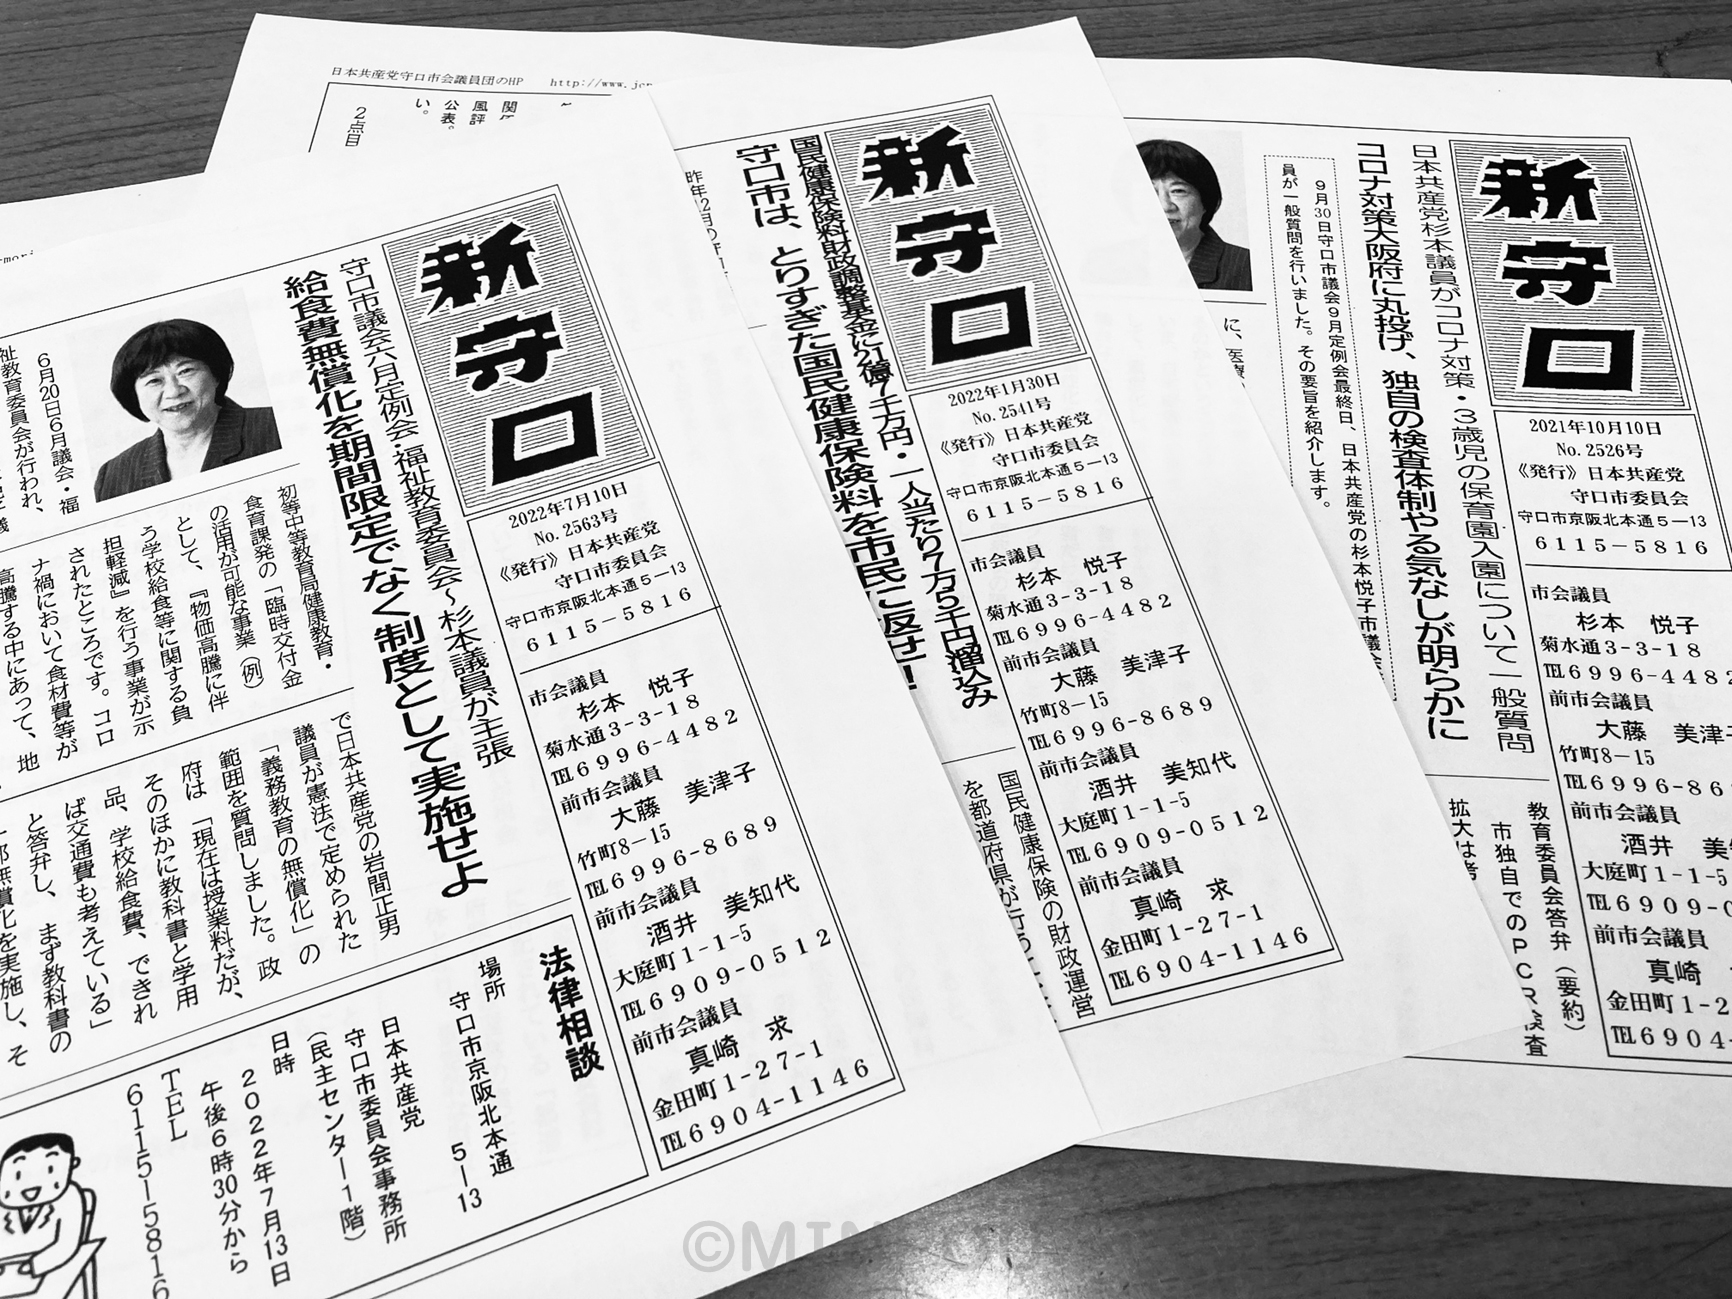 日本共産党守口市会議員団のHP
２点目
公表。
風評
い。
新守口
2022年7月10日
No. 2563号
《発行》日本共産党
守口市委員会
守口市京阪北本通５−13
６１１５−５８１６
市会議員
杉本　悦子
菊水通3-3-18
℡６９９６-４４８２
前市会議員
大藤　美津子
竹町8−15
℡６９９６-８６８９
前市会議員
酒井　美知代
大庭町1-1-5
℡６９０９-０５１２
前市会議員
真崎　求
金田町1-27-1
℡６９０４-１１４６
守口市議会六月定例会・福祉教育委員会～杉本議員が主張
給食費無償化を期間限定でなく制度として実施せよ
６月20日６月議会・福
祉教育委員会が行われ、
初等中等教育局健康教育・
食育課発の「臨時交付金
の活用が可能な事業（例）
として、『物価高騰に伴
う学校給食等に関する負
担軽減』を行う事業が示
されたところです。コロ
ナ禍において食材費等が
高騰する中にあって、地
で日本共産党の岩間正男
議員が憲法で定められた
「義務教育の無償化」の
範囲を質問しました。政
府は「現在は授業料だが、
そのほかに教科書と学用
品、学校給食費、できれ
ば交通費も考えている」
と答弁し、まず教科書の
法律相談
場所
守口市京阪北本通
５−13
日本共産党
守口市委員会事務所
（民主センター１階）
日時
２０２２年７月13日
午後６時30分から
ＴＥＬ
６１１５−５８１６
新守口
2022年1月30日
No. 2541号
《発行》日本共産党
守口市委員会
守口市京阪北本通５−13
６１１５−５８１６
市会議員
杉本　悦子
菊水通3-3-18
℡６９９６-４４８２
前市会議員
大藤　美津子
竹町8−15
℡６９９６-８６８９
前市会議員
酒井　美知代
大庭町1-1-5
℡６９０９-０５１２
前市会議員
真崎　求
金田町1-27-1
℡６９０４-１１４６
国民健康保険料財政調整基金に21億7千万円・一人当たり7万5千円溜込み
守口市は、とりすぎた国民健康保険料を市民に返せ！
昨年2月の守
国民健康保険の財政運営
を都道府県が行う
新守口
2021年10月10日
No. 2526号
《発行》日本共産党
守口市委員会
守口市京阪北本通５−13
６１１５−５８１６
市会議員
杉本　悦子
菊水通3-3-18
℡６９９６-４４８２
前市会議員
大藤　美津子
竹町8−15
℡６９９６-８６
前市会議員
酒井　美
大庭町1-1-5
℡６９０９-０
前市会議員
真崎
金田町1-2
℡６９０４-
日本共産党杉本議員がコロナ対策・３歳児の保育園入園について一般質問
コロナ対策大阪府に丸投げ、独自の検査体制やる気なしが明らかに
９月30日守口市議会９月定例会最終日、日本共産党の杉本悦子市議会
員が一般質問を行いました。その要旨を紹介します。
に、医療
教育委員会答弁（要約）
市独自でのＰＣＲ検査
拡大は考
©MIN